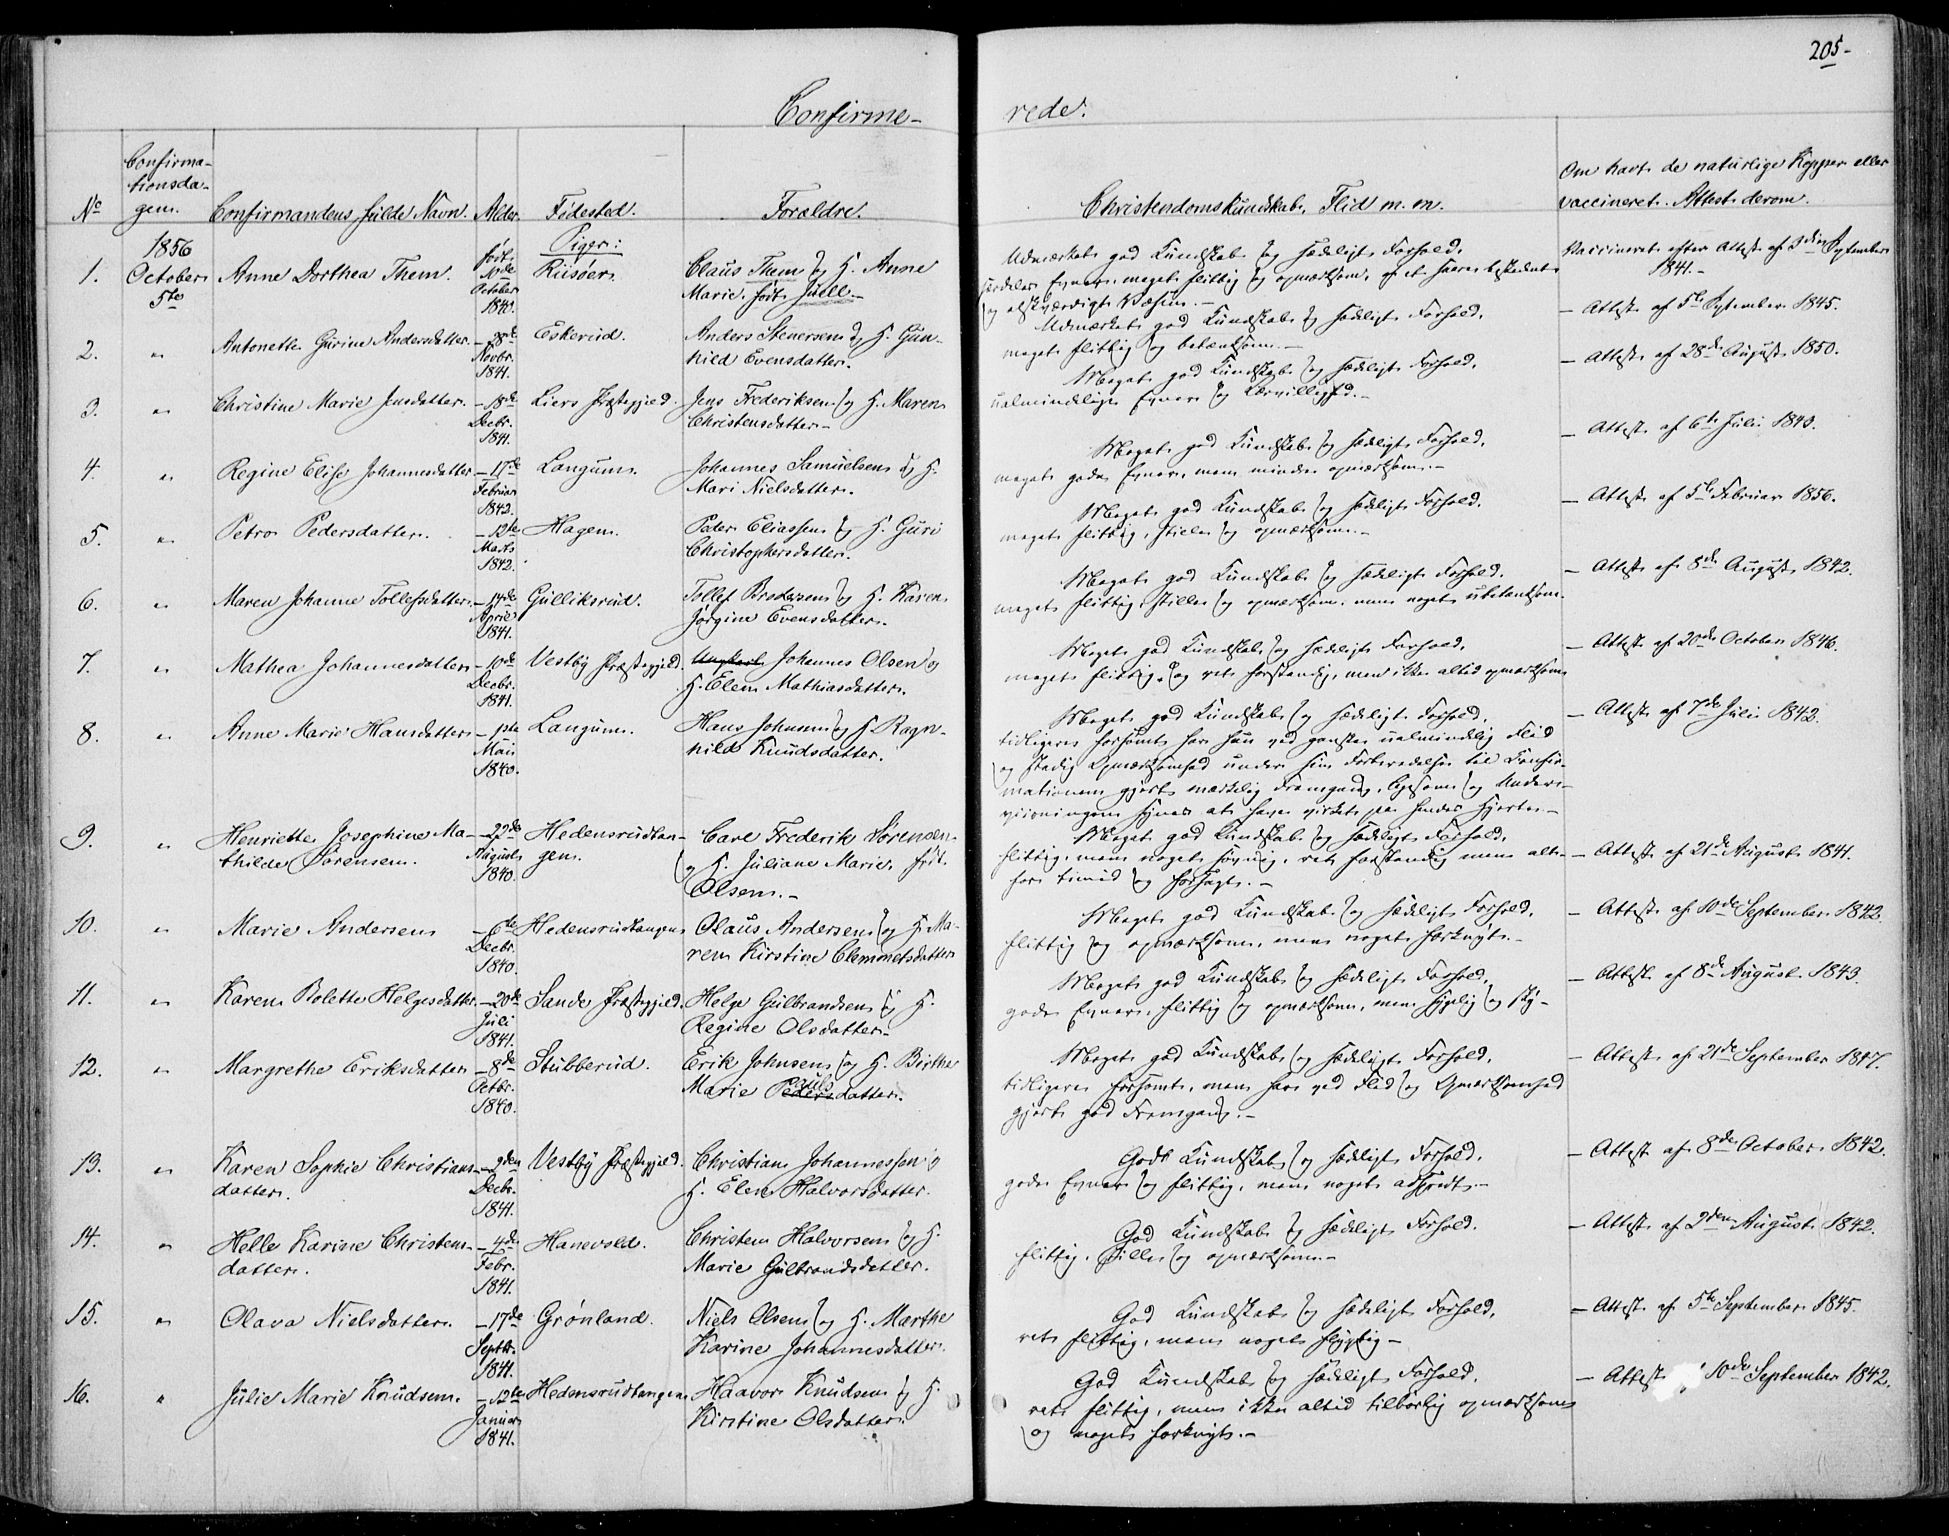 205-
Confirme-
rede.
No
Confirma-
tionsda-
gen.
Confirmandens fulde Navn.
Alder.
Fødested.
Forældre.
Christendomskundskab, Flid m. m.
Om havt de naturlige Kopper eller
vaccineret. Attest derom.
1856
October
5te
Piger:
1.
Anne Dorthea Them.
født
October
1840.
Riisøer.
Claus Them og H. Anne
Marie, født Juell.-
Udmærket god Kundskab og sædeligt Forhold,
særdeles Evner, meget flittig og opmærksom, af et saare beskedent
og elskværdigt Væsen.-
Vaccineret efter Attest af September
1841.-
2.
"
Antonette Gurine Andersdatter.
- 28de
Novbr.
1841.
Eskerud.
Anders Stenersen og H. Gun-
hild Evensdatter.
Udmærket god Kundskab og sædeligt Forhold,
meget flittig og betænksom.-
- Attest af 5te September 1845.
3.
"
Christine Marie Jensdatter.
- 18de
Decbr.
1841.
Liers Præstegjeld.
Jens Frederiksen og H. Maren
Christensdatter-
Meget god Kundskab og sædeligt Forhold,
ualmindelige Evner og Lærvillighed.-
- Attest af 28de August 1850.
4.
"
Regine Elise Johannesdatter
- 17de
Februar
1842.
Langum.
Johannes Samuelsen og H.
Mari Nielsdatter.
Meget god Kundskab og sædeligt Forhold,
meget gode Evner, men mindre opmærksom.-
- Attest af 6te Juli 1843.
5.
"
Petra Pedersdatter.
- 12te
Marts
1842.
Hagen.
Peder Eliassen og H. Guri
Christophersdatter.
Meget god Kundskab og sædeligt Forhold,
meget flittig, stille og opmærksom.-
- Attest af 5te Februar 1856.
6.
"
Maren Johanne Tollefsdatter
- 14de
April
1841.
Gulliksrud.
Tollef Brodersen og H. Karen
Jørgine Evensdatter.
Meget god Kundskab og sædeligt Forhold,
meget flittig, stille og opmærksom, men noget ubetænksom
- Attest af 8de August 1842.
7.
"
Mathea Johannesdatter
- 10de
Decbr.
1841.
Vestby Præstegjeld.
Johannes Olsen og
H. Elen Mathiasdatter.
Meget god Kundskab og sædeligt Forhold,
meget flittig og ret forstandig, men ikke altid opmærksom
- Attest af 20de October 1846.
8.
"
Anne Marie Hansdatter
- 1ste
Mai
1840.
Langum.
Hans Johnsen og H. Ragn-
hild Knudsdatter.
Meget god Kundskab og sædeligt Forhold,
tidligere forsømt har hun ved ganske ualmindelig Flid
og stadig Opmærksomhed under sin Forberedelse til Confir-
mationen gjort mærkelig Fremgang, ligesom og Under-
viisningen synes at have virket paa hendes Hjerte.-
- Attest af 7de Juli 1842.
9.
"
Henriette Josephine Ma-
thilde Sørensen.
- 22de
August
1840.
Hedensrudtan-
gen.
Carl Frederik Sørensen
og H. Juliane Marie, født
Olsen.-
Meget god Kundskab og sædeligt Forhold,
flittig, men noget søvnig, ret forstandig men alt-
for timid og forsagt.-
- Attest af 21de August 1841.
10.
"
Marie Andersen
- 6te
Decbr.
1840.
Hedensrudtangen
Olaus Andersen og H. Ma-
ren Kirstine Clemmetsdatter
Meget god Kundskab og sædeligt Forhold,
flittig og opmærksom, men noget forknyt.-
- Attest af 10de September 1842.
11.
"
Karen Bolette Helgesdatter
- 20de
Juli
1841.
Sande Præstegjeld.
Helge Gulbrandsen og H.
Regine Olsdatter-
Meget god Kundskab og sædeligt Forhold,
gode Evner, flittig og opmærksom, men sygelig og sky-
- Attest af 8de August 1843.
12.
"
Margrethe Eriksdatter
- 8de
Octbr.
1840.
Stubberud.
Erik Johnsen og H. Birthe
Marie Pedersdatter.
Pauls
Meget god Kundskab og sædeligt Forhold,
tidligere forsømt, men har ved Flid og Opmærksomhed
gjort god Fremgang.-
- Attest af 21de September 1847.
13.
"
Karen Sophie Christians-
datter.
- 2den
Decbr.
1841.
Vestby Præstegjeld.
Christian Johannessen og
H. Elen Halvorsdatter.
Godt Kundskab og sædeligt Forhold,
gode Evner og flittig, men noget adspredt.-
- Attest af 8de October 1842.
14.
"
Helle Karine Christens-
datter.
- 4de
Febr.
1841.
Hanevold.
Christen Halvorsen og H.
Marie Gulbrandsdatter.
God Kundskab og sædeligt Forhold,
flittig, stille og opmærksom-
- Attest af 2den August 1842.
15.
"
Olava Nielsdatter.
- 17de
Septbr.
1841.
Grønland.
Niels Olsen og H. Marthe
Karine Johannesdatter.
God Kundskab og sædeligt Forhold,
ret flittig, men noget flygtig-
- Attest af 5te September 1845.
16.
"
Julie Marie Knudsen.
- 12te
Januar
1841.
Hedensrudtangen
Haavor Knudsen og H.
Kirstine Olsdatter.
God Kundskab og sædeligt Forhold,
ret flittig, men ikke altid tilbørlig opmærksom
og noget forknyt.-
- Attest 10de September 1842.